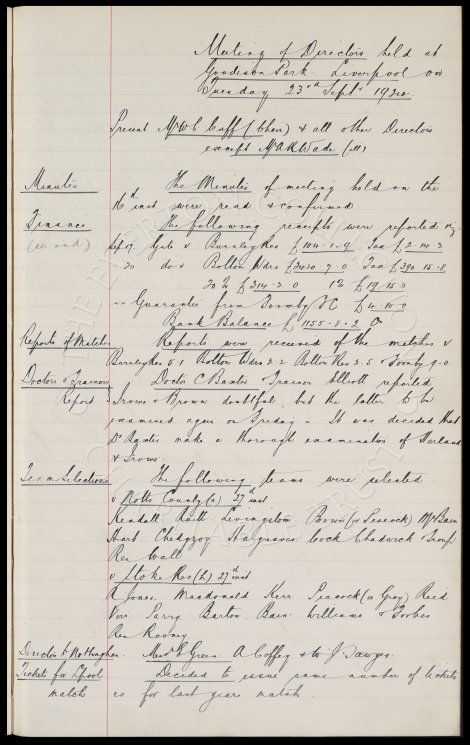 Meeting of Directors held at
Goodison Park Liverpool on
Tuesday 23rd Sept 1924.
Present Mr W C Cuff (Chair) & all other Directors
except Mr A R Wade (ill)
Minutes The Minutes of meeting held on the
16th inst were read & confirmed.
Finance The following receipts were reported viz
(see end) Sep 17 Gate v Burnley Res £104-1-9 Tax £2-14-2
" 20 do v Bolton Wdrs £3420-7-0 Tax £390-15-8
20% £314-2-0 1% £19-15-3
" " Guarantee from Formby FC £4-10-0
Bank Balance £1155-8-2 Cr
Reports of Matches Reports were received of the matches v
Burnley Res 5.1 Bolton Wdrs 2-2 Bolton Res 2.5 & Formby 9-0
Doctors & Trainers Doctor C Baxter & Trainer Elliott reported
Report Irvine & Brown doubtful, but the latter to be
examined again on Friday. It was decided that
Dr make a thorough examination of Harland
& Irvine.
Team Selections The following teams were selected.
v Notts County (a) 27th inst
Kendall Raitt Livingstone Brown (or Peacock) McBain
Hart Chedgzoy Hargreaves Cock Chadwick Troup
Res Wall
v Stoke Res (h) 27th inst
R Jones Macdonald Kerr Peacock (or Gay) Reid
Virr Parry Barton Bain Williams & Forbes
Res Rooney
Director to Nottingham Messrs E Green A Coffey & Mr J Sawyer.
Tickets for L'pool Decided to issue same number of tickets
match as for last years match.